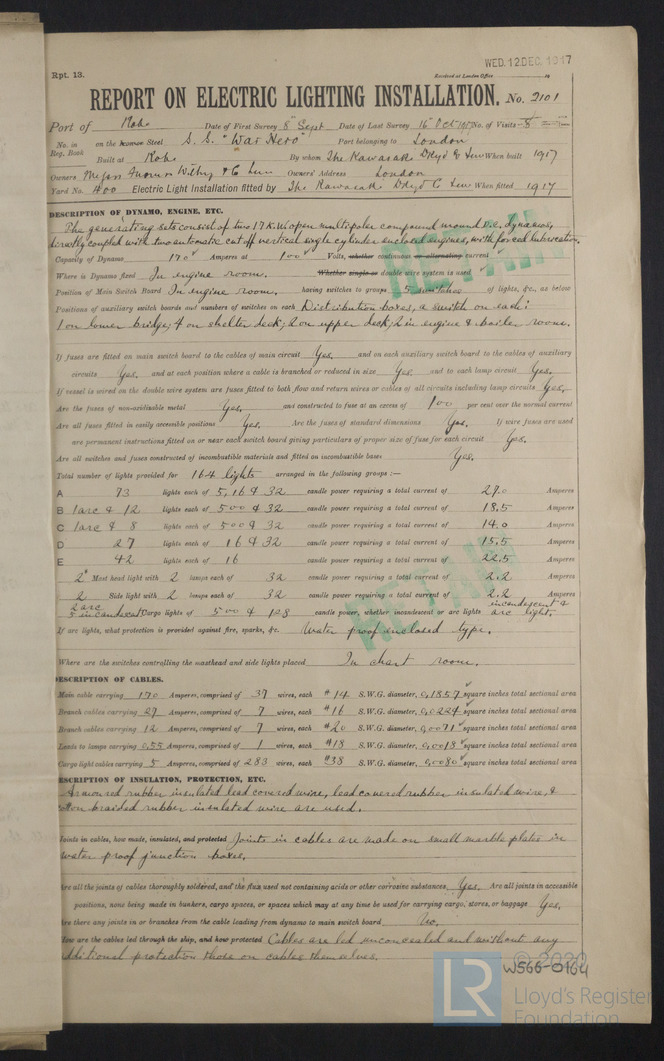 WED. 12 DEC. 1917
Rpt. 13.
Received at London Office
REPORT ON ELECTRIC LIGHTING INSTALLATION. No. 2101
Port of Kobe Date of First Survey 8th Sept Date of Last Survey 16th Oct 1917 No. of Visits 8
No. in Reg. Book on the Iron or Steel S.S. "War Hero" Port belonging to London
Built at Kobe By whom The Kawasaki Dkyd Co Ltd When built 1917
Owners Owners' Address London
Yard No. 400 Electric Light Installation fitted by The Kawasaki Dkyd C When fitted 1917
DESCRIPTION OF DYNAMO, ENGINE, ETC.
The generating sets consist of two 17 K.W. open multipolar compound wound D.C. dynamos,
directly coupled with two automatic cut off vertical single cylinder enclosed engines, with forced lubrication.
Capacity of Dynamo 170 Amperes at 100 Volts, whether continuous or alternating current
Where is Dynamo fixed In engine room. Whether single or double wire system is used
Position of Main Switch Board In engine room. having switches to groups 5 switches of lights, &c., as below
Positions of auxiliary switch boards and numbers of switches on each Distribution boxes, a switch on each:
1 on lower bridge; 4 on shelter deck; 2 on upper deck; 2 in engine & boiler rooms.
If fuses are fitted on main switch board to the cables of main circuit Yes. and on each auxiliary switch board to the cables of auxiliary
circuits Yes. and at each position where a cable is branched or reduced in size Yes. and to each lamp circuit Yes.
If vessel is wired on the double wire system are fuses fitted to both flow and return wires or cables of all circuits including lamp circuits Yes.
Are the fuses of non-oxidisable metal Yes. and constructed to fuse at an excess of 100 per cent over the normal current
Are all fuses fitted in easily accessible positions Yes. Are the fuses of standard dimensions Yes. If wire fuses are used
are permanent instructions fitted on or near each switch board giving particulars of proper size of fuse for each circuit Yes.
Are all switches and fuses constructed of incombustible materials and fitted on incombustible bases Yes.
Total number of lights provided for 164 lights arranged in the following groups :—
A 73 lights each of 5, 16 & 32 candle power requiring a total current of 27.0 Amperes
B 1 arc & 12 lights each of 500 & 32 candle power requiring a total current of 18.5 Amperes
C 1 arc & 8 lights each of 500 & 32 candle power requiring a total current of 14.0 Amperes
D 27 lights each of 16 & 32 candle power requiring a total current of 15.5 Amperes
E 42 lights each of 16 candle power requiring a total current of 22.5 Amperes
2 Mast head light with 2 lamps each of 32 candle power requiring a total current of 2.2 Amperes
2 Side light with 2 lamps each of 32 candle power requiring a total current of 2.2 Amperes
2 arc
5 incandescent Cargo lights of 500 & 108 candle power, whether incandescent or arc lights incandescent & arc light.
If arc lights, what protection is provided against fire, sparks, &c. Water proof enclosed type.
Where are the switches controlling the masthead and side lights placed In chart room.
DESCRIPTION OF CABLES.
Main cable carrying 170 Amperes, comprised of 37 wires, each #14 S.W.G. diameter, 0.1857 square inches total sectional area
Branch cables carrying 27 Amperes, comprised of 7 wires, each #16 S.W.G. diameter, 0.0224 square inches total sectional area
Branch cables carrying 12 Amperes, comprised of 7 wires, each #20 S.W.G. diameter, 0.0071 square inches total sectional area
Leads to lamps carrying 0.55 Amperes, comprised of 1 wires, each #18 S.W.G. diameter, 0.0018 square inches total sectional area
Cargo light cables carrying 5 Amperes, comprised of 283 wires, each #38 S.W.G. diameter, 0.0080 square inches total sectional area
DESCRIPTION OF INSULATION, PROTECTION, ETC.
Armoured rubber insulated lead covered wire, lead covered rubber insulated wire, &
cotton braided rubber insulated wire are used.
Joints in cables, how made, insulated, and protected Joints in cables are made on small marble plates in
water proof junction boxes.
Are all the joints of cables thoroughly soldered, and the flux used not containing acids or other corrosive substances, Yes. Are all joints in accessible
positions, none being made in bunkers, cargo spaces, or spaces which may at any time be used for carrying cargo, stores, or baggage Yes.
Are there any joints in or branches from the cable leading from dynamo to main switch board No.
How are the cables led through the ship, and how protected Cables are led unconcealed and without any
additional protection those on cables themselves.
RETAIN
RETAIN
W566-0164
© 2020
LR
Lloyd's Register
Foundation